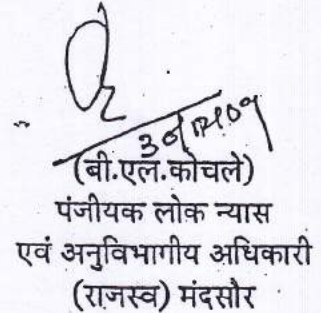 (बी.एल.कोचले)
पंजीयक लोक न्यास
एवं अनुविभागीय अधिकारी
(राजस्व) मंदसौर